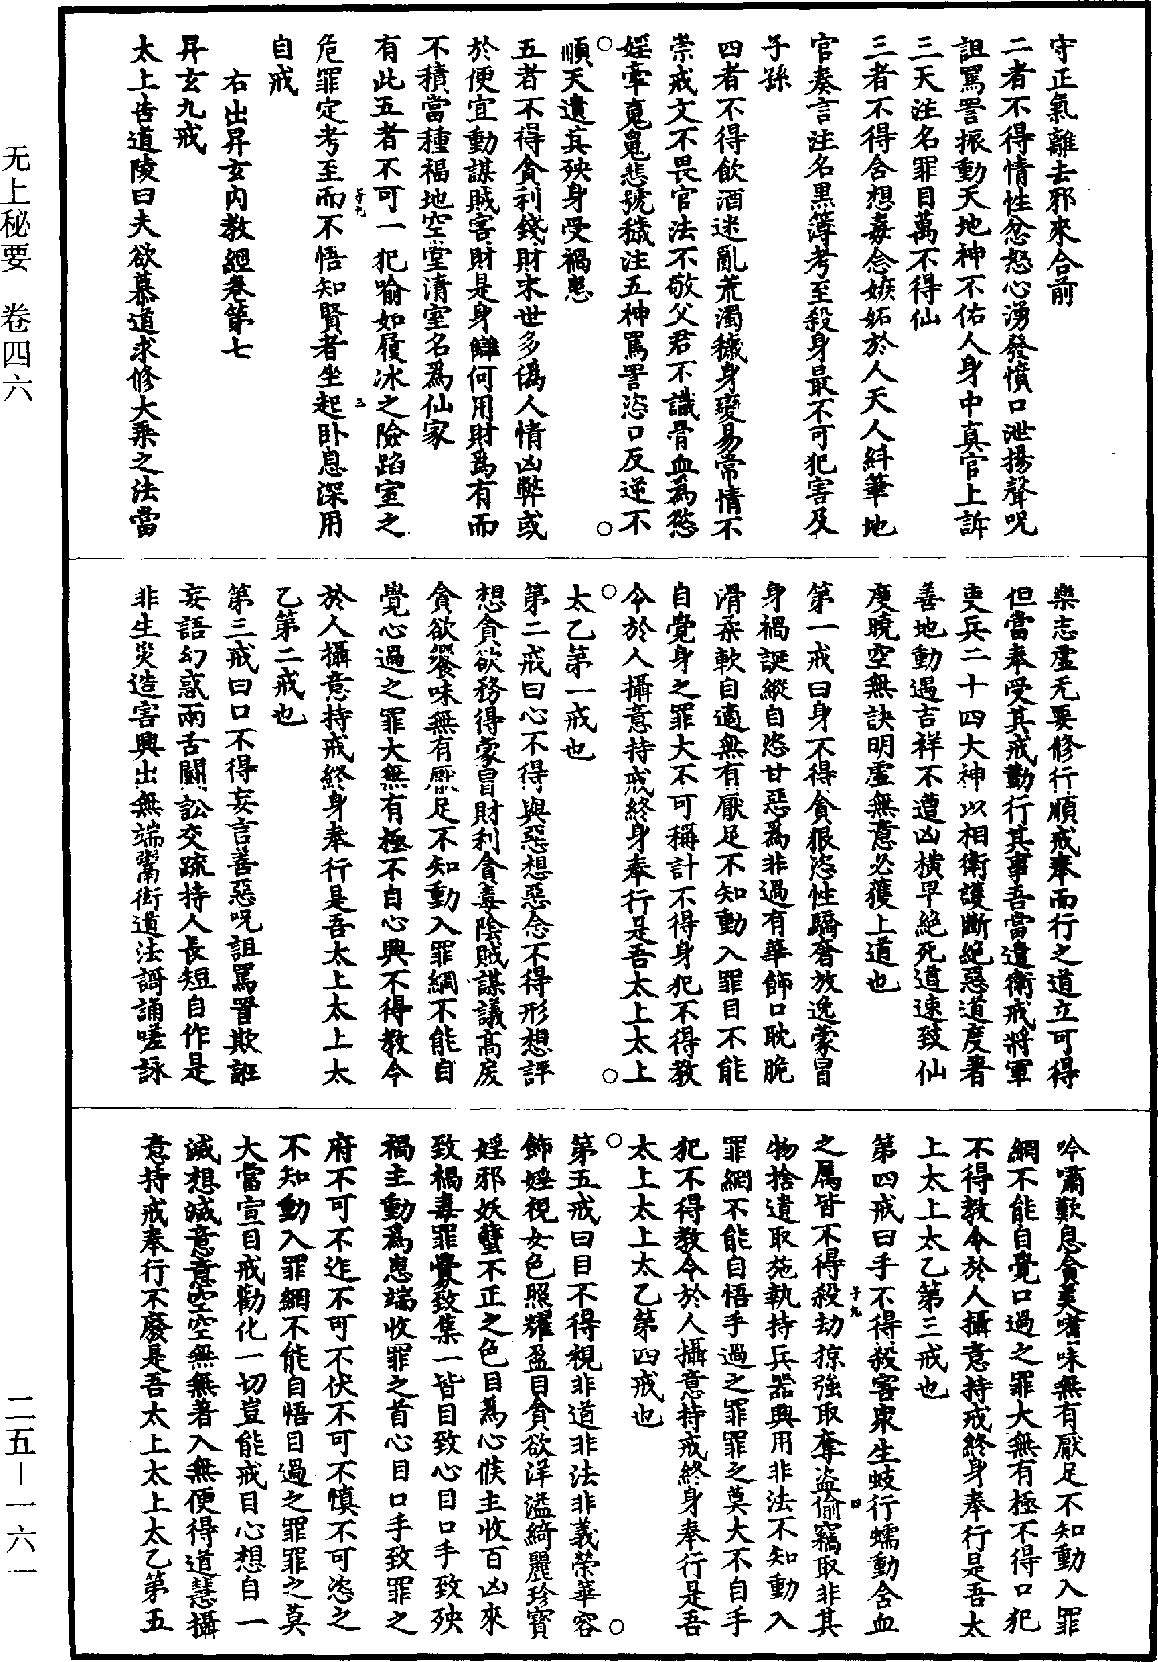 守正氣離去邪來合前
二者不得情性忿怒心湧發憤口泄揚聲呪
詛罵詈振動天地神不佑人身中真官上訴
三天注名罪目萬不得仙
三者不得含想毒念嫉妬於人天人糾筆地
官奏言注名黑簿考至殺身最不可犯害及
子孫
四者不得飲酒迷亂荒濁穢身變易常情不
崇戒文不畏官法不敬父君不識骨血為慾
婬牽魂鬼悲號穢注五神罵詈恣口反逆不
順天遺其殃身受禍患
五者不得貪利錢財末世多偽人情凶弊或
於便宜動謀賊害財是身讎何用財為有而
不積當種福地空堂清室名為仙家
有此五者不可一犯喻如履冰之險蹈室之
危罪定考至而不悟知賢者坐起臥息深用
自戒
右出昇玄內教經卷第七
昇玄九戒
太上告道陵曰夫欲慕道求修大乘之法當
樂志虛无要修行順戒奉而行之道立可得
但當奉受其戒勤行其事吾當遣衛戒將軍
吏兵二十四大神以相衛護斷絕惡道度著
善地動遇吉祥不遭凶橫早絕死道速致仙
度曉空無訣明虛無意必獲上道也
第一戒曰身不得貪狠恣性驕奢放逸蒙冒
身禍誕縱自恣甘惡為非過有華飾口耽脆
滑柔軟自適無有厭足不知動入罪目不能
自覺身之罪大不可稱計不得身犯不得教
令於人攝意持戒終身奉行是吾太上太上
太乙第一戒也
第二戒曰心不得與惡想惡念不得形想評
想貪欲務得蒙冒財利貪毒陰賊謀議高房
貪欲饕味無有厭足不知動入罪網不能自
覺心過之罪大無有極不自心興不得教令
於人攝意持戒終身奉行是吾太上太上太
乙第二戒也
第三戒曰口不得妄言善惡呪詛罵詈欺誑
妄語幻惑兩舌鬪訟交疏持人長短自作是
非生災造害興出無端鬻街道法謌誦嗟詠
吟嘯歎息貪美嗜味無有厭足不知動入罪
網不能自覺口過之罪大無有極不得口犯
不得教令於人攝意持戒終身奉行是吾太
上太上太乙第三戒也
第四戒曰手不得殺害眾生蚑行蠕動含血
之屬皆不得殺劫掠強取奪盜偷竊取非其
物捨遺取施執持兵器興用非法不知動入
罪網不能自悟手過之罪罪之莫大不自手
犯不得教令於人攝意持戒終身奉行是吾
太上太上太乙第四戒也
第五戒曰目不得視非道非法非義榮華容
飾婬視女色照耀盈目貪欲洋溢綺麗珍寶
婬邪妖蠥不正之色目為心候主收百凶來
致禍毒罪釁致集一皆目致心目口手致殃
禍主動為患端收罪之首心目口手致罪之
府不可不迮不可不伏不可不慎不可恣之
不知動入罪網不能自悟目過之罪罪之莫
大當宣目戒勸化一切豈能戒目心想自一
滅想滅意意空空無無著入無便得道慧攝
意持戒奉行不廢是吾太上太上太乙第五
无上秘要　卷四六
二五－一六一